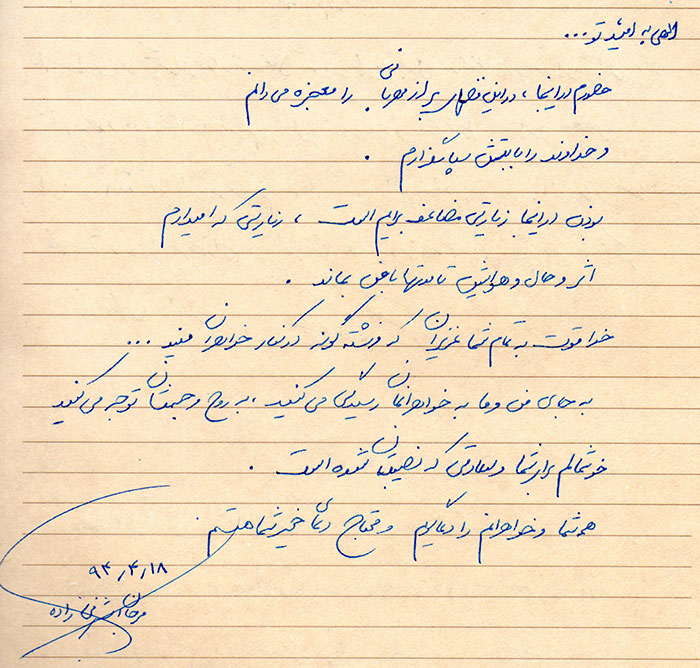 الهی به امید تو...
حضورم در اینجا، در این فضای پر از مهربانی را معجزه می دانم
و خداوند را بابتش سپاسگزارم.
بودن در اینجا زیارتی مضاعف برایم است، زیارتی که امیدارم
اثر و حال و هوایش تا مدتها باقی بماند.
خدا قوت به تمام شما عزیزان که فرشته گونه در کنار خواهران هستید...
به جای من و ما به خواهرانمان رسیدگی می کنید، به روح و جسمشان توجه می کنید
خوشحالم برای شما و سعادتی که نصیبتان شده است.
همه شما و خواهرانم را دعاگویم و محتاج دعای خیر شما هستم.
۹۴/۴/۱۸
زاده